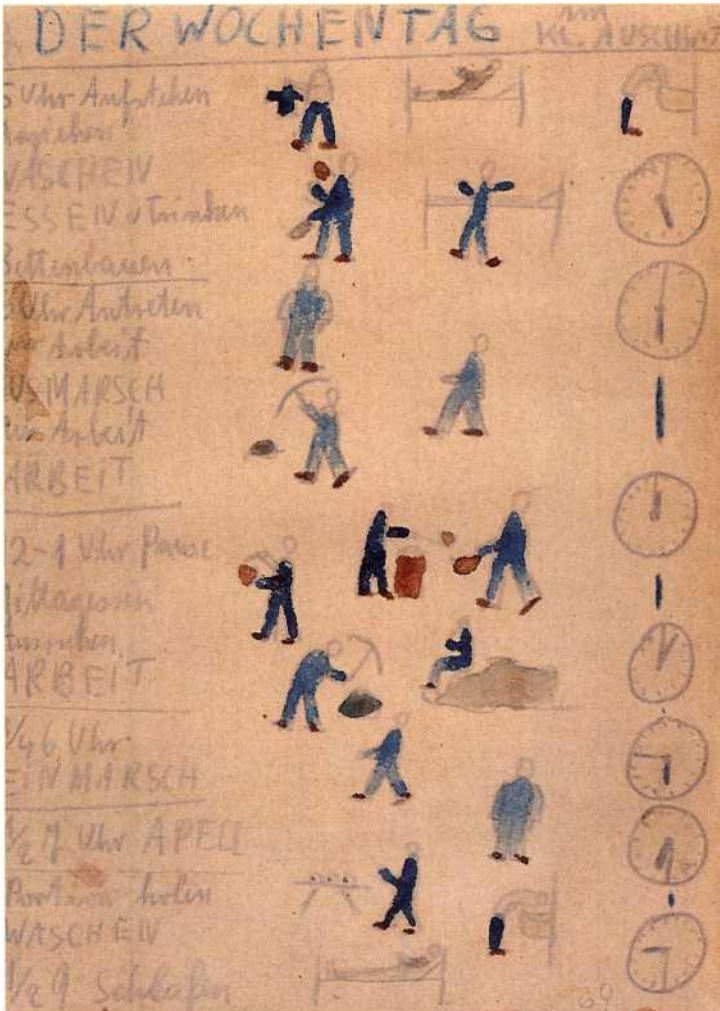 DER WOCHENTAG im
KL. AUSCHWITZ
5 Uhr Aufstehen
WASCHEN
ESSEN u trinken
Bettenbauen
Uhr Antreten
zur Arbeit
AUSMARSCH
zur Arbeit
ARBEIT
2-1 Uhr Pause
Mittagessen
ARBEIT
3/4 6 Uhr
EINMARSCH
1/2 7 Uhr APELL
Portion holen
WASCHEN
1/2 9 Schlafen
69